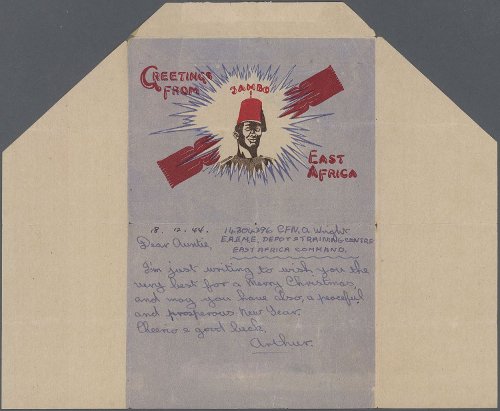 GREETINGS
FROM
JAMBO
EAST
AFRICA
18. 12. 44. 14304396 CFN. A. Wright
E.A.E.M.E. DEPOT & TRAINING CENTRE
EAST AFRICA COMMAND.
Dear Auntie,
I'm just writing to wish you the
very best for a Merry Christmas,
and may you have also, a peaceful
and prosperous New Year.
Cheerio & good luck,
Arthur.